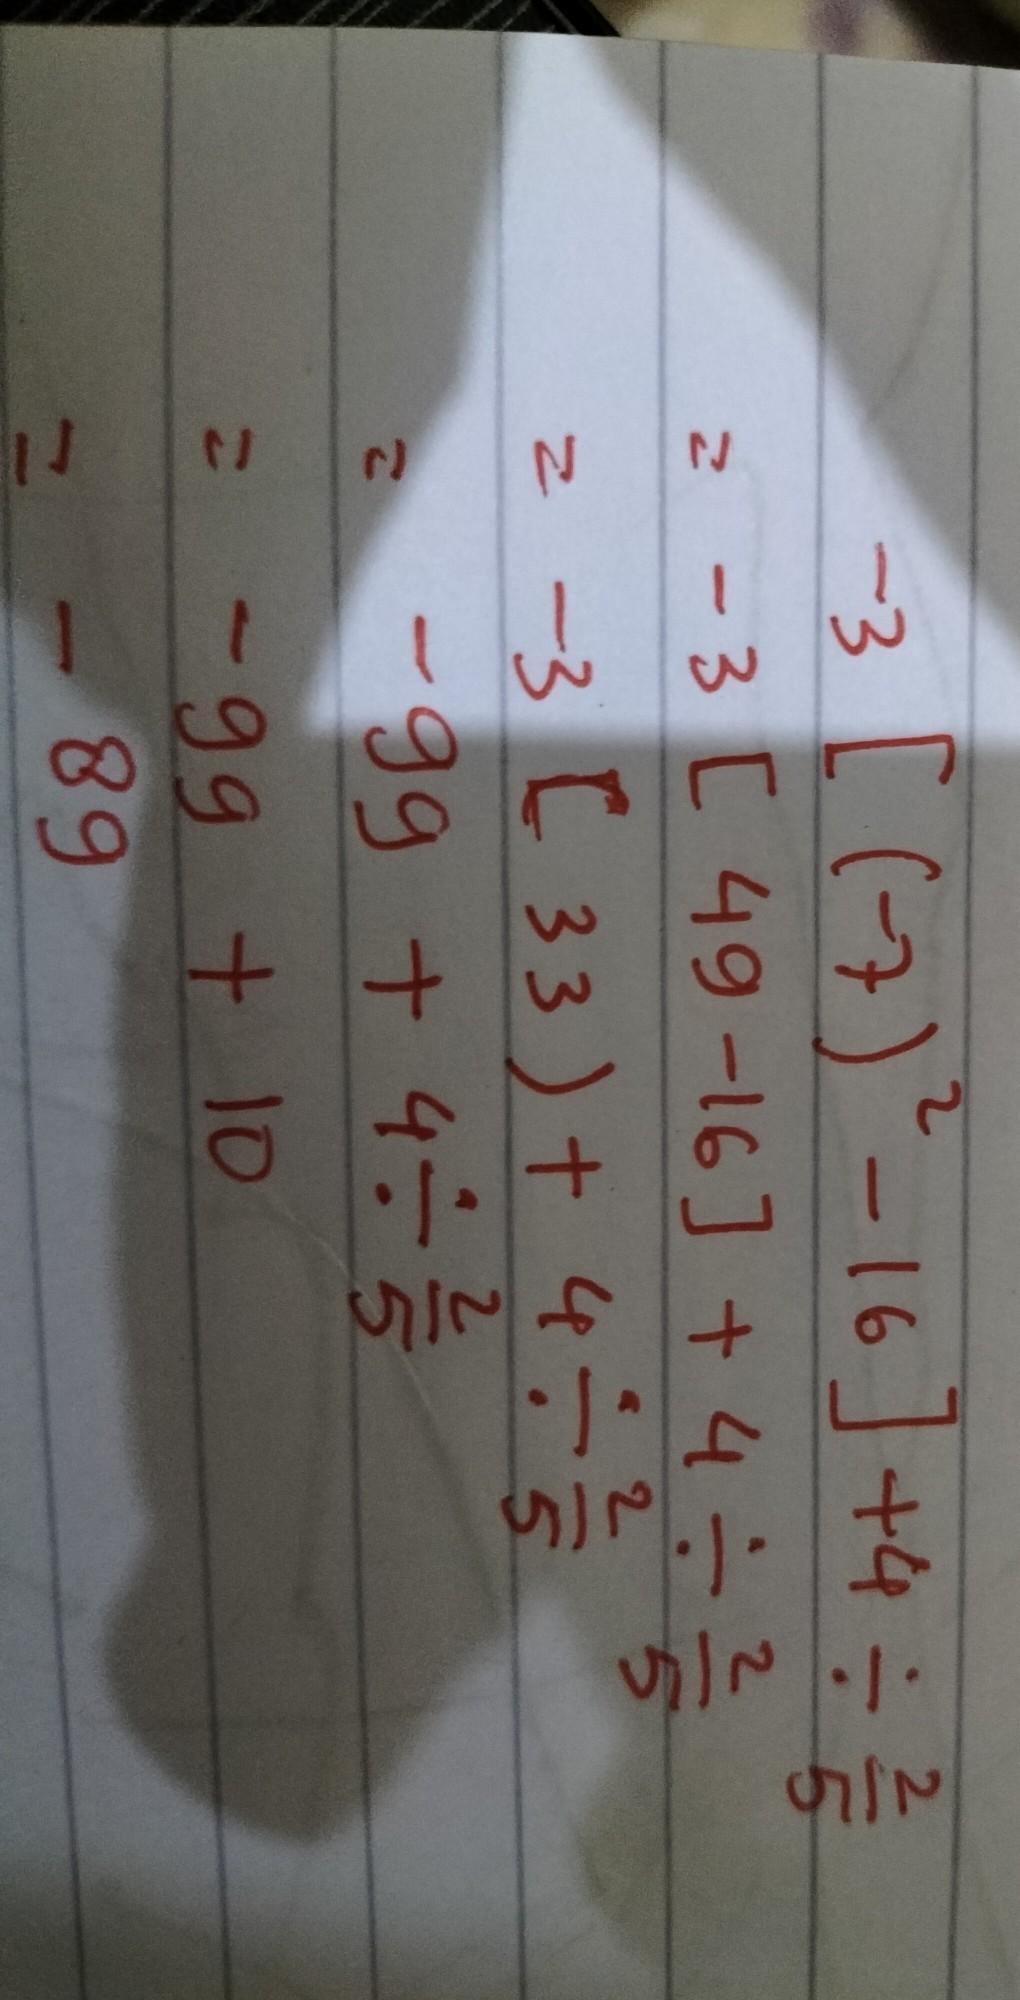 -3 [ (-7)² - 16 ] + 4 ÷ 2/5
= -3 [ 49 - 16 ] + 4 ÷ 2/5
= -3 [ 33 ) + 4 ÷ 2/5
= -99 + 4 ÷ 2/5
= -99 + 10
= -89